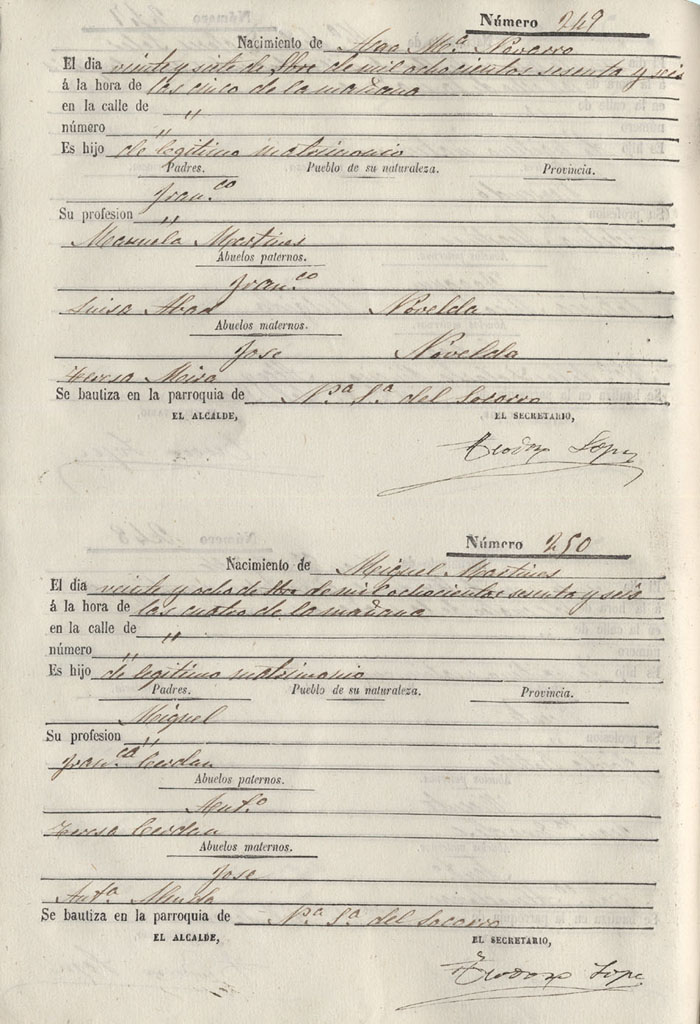 Número 249
Nacimiento de Ana Mª Navarro
El dia veinte y siete de Sbre de mil ochocientos sesenta y seis
á la hora de las cinco de la mañana
en la calle de "
número "
Es hijo de legitimo matrimonio
Padres. Pueblo de su naturaleza. Provincia.
Fran.co
Su profesion "
Manuela Martines
Abuelos paternos.
Fran.co
Luisa Abad Novelda
Abuelos maternos.
Jose Novelda
Teresa Mira
Se bautiza en la parroquia de N.a S.a del Socorro
EL ALCALDE, EL SECRETARIO,
Teodoro Lopez
Número 250
Nacimiento de Miguel Martines
El dia veinte y ocho de Sbre de mil ochocientos sesenta y seis
á la hora de las cuatro de la mañana
en la calle de "
número "
Es hijo de legitimo matrimonio
Padres. Pueblo de su naturaleza. Provincia.
Miguel
Su profesion "
Fran.ca Cerdan
Abuelos paternos.
Ant.o
Teresa Cerdan
Abuelos maternos.
Jose
Ant.a
Se bautiza en la parroquia de N.a S.a del Socorro
EL ALCALDE, EL SECRETARIO,
Teodoro Lopez